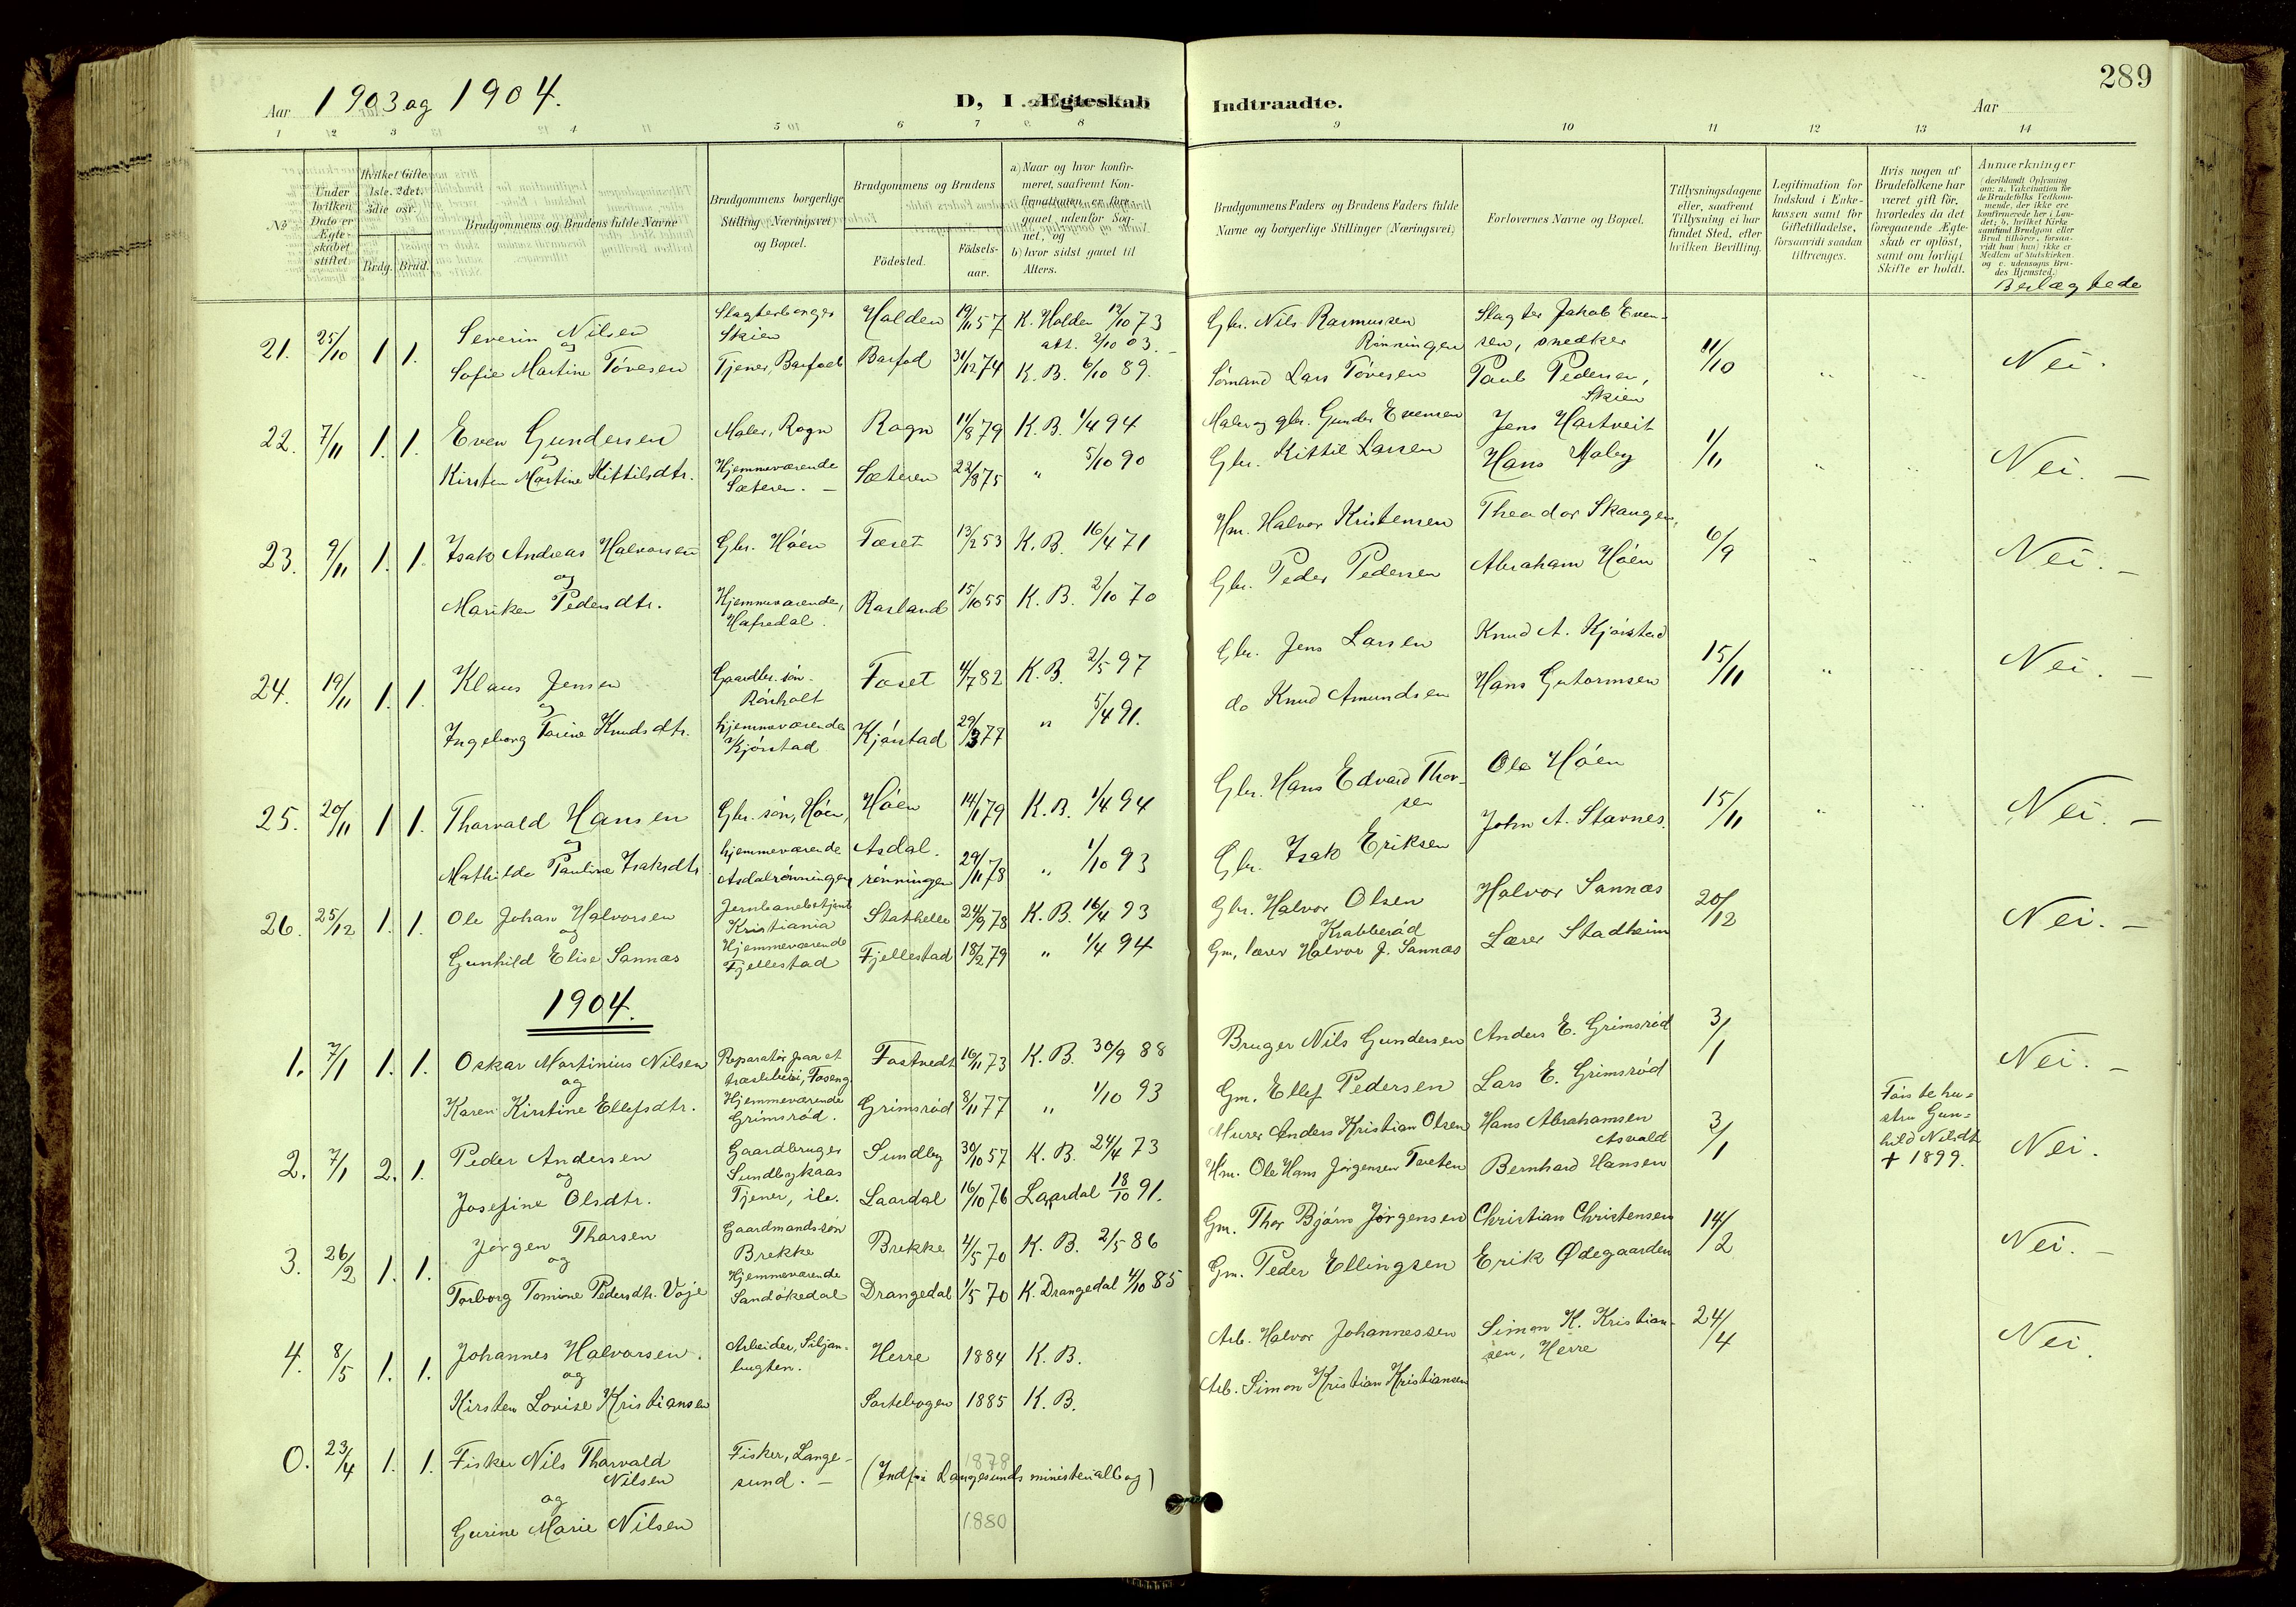 289
Aar 1903 og 1904.
D, I. Ægteskab Indtraadte.
Aar
1 2 3 4 5 6 7 8 9 10 11 12 13 14
№
Under hvilken Dato er Ægteskabet stiftet.
Hvilket Gifte. 1ste, 2det, 3die osv.
Brdg. Brud.
Brudgommens og Brudens fulde Navne
Brudgommens borgerlige Stilling (Næringsvei) og Bopæl.
Brudgommens og Brudens
Fødested.
Fødsels-aar.
a) Naar og hvor konfir-
meret, saafremt Kon-
firmationen er fore-
gaaet udenfor Sog-
net, og
b) hvor sidst gaaet til
Alters.
Brudgommens Faders og Brudens Faders fulde
Navne og borgerlige Stillinger (Næringsvei)
Forlovernes Navne og Bopæl.
Tillysningsdagene
eller, saafremt
Tillysning ei har
fundet Sted, efter
hvilken Bevilling.
Legitimation for
Indskud i Enke-
kassen samt for
Giftetilladelse,
forsaavidt saadan
tiltrænges.
Hvis nogen af
Brudefolkene har
været gift før,
hvorledes da det
foregaaende Ægte-
skab er opløst,
samt om lovligt
Skifte er holdt.
Anmærkninger
(deriblandt Oplysning
om: a. Vakcination for
de Brudefolks Vedkom-
mende, der ikke ere
konfirmerede her i Lan-
det; b. hvilket Kirke
samfund Brudgom eller
Brud tilhører, forsaa-
vidt han (hun) ikke er
Medlem af Statskirken
og c. udensogns Bru-
des Hjemsted.)
Beslægtede
21. 25/10 1 1. Severin Nilsen Slagterborger Skien Holden 19/11 57 K. Holden 12/10 73 att. 2/10 03. Gbr. Nils Rasmussen Rønningen Slagter Jakob Even-
sen, snedker 11/10 " " Nei.
og
Sofie Martine Tóvesen Tjener, Barfod Barfod 31/12 74 K. B. 6/10 89. Sómand Lars Tóvesen Paul Pedersen, Skien
22. 7/11 1. 1. Even Gundersen Maler, Rogn Rogn 11/8 79 K. B. 1/4 94 Maler og gbr. Gunder Evensen Jens Hartveit 1/11 " " Nei. –
og
Kirsten Martine Kittilsdtr. Hjemmeværende Sæteren. – Sæteren 22/8 75 " 5/10 90 Gbr. Kittil Larsen Hans Moley
23. 9/11 1. 1. Isak Andreas Halvorsen Gbr. Hóen Foset 13/2 53 K. B. 16/4 71 Hm. Halvor Kristensen Theodor Skaugen. 6/9 " " Nei. –
og
Mariken Pedersdtr. Hjemmeværende, Hafredal. Rasland 15/10 55 K. B. 2/10 70 Gbr. Peder Pedersen Abraham Hóen
24. 19/11 1. 1. Klaus Jensen Gaardbr. søn. Rónholt Foset 4/7 82 K. B. 2/5 97 Gbr. Jens Larsen Knud A. Kjórstad 15/11 " " Nei. –
og
Ingeborg Torine Knudsdtr. hjemmeværende Kjórstad Kjórstad 29/3 77 " 5/4 91. do Knud Amundsen Hans Gutormsen
25. 20/11 1 1. Thorvald Hansen Gbr. søn, Hóen, Hóen 14/1 79 K. B. 1/4 94 Gbr. Hans Edvard Thor-
sen Ole Hóen 15/11 " " Nei. –
og
Mathilde Pauline Isaksdtr. hjemmeværende Asdalrønningen Asdal.
rønningen 29/11 78 " 1/10 93 Gbr. Isak Eriksen John A. Starnes.
26. 25/12 1. 1. Ole Johan Halvorsen Jernbanebetjent Kristiania Stathelle 24/9 78 K. B. 16/4 93 Gbr. Halvor Olsen Krabberód Halvor Sannæs 20/12 Nei. –
og
Gunhild Elise Sannæs Hjemmeværende Fjellestad Fjellestad 18/2 79 " 1/4 94 Gm, lærer Halvor J. Sannæs Lærer Stadheim
1904.
1. 7/1 1. 1. Oskar Martinius Nilsen Reparatør paa et træsliberi, Foseng Fostvedt 16/11 73 K. B. 30/9 88 Bruger Nils Gundersen Anders E. Grimsrød 3/1 Nei. –
og
Karen Kirstine Ellefsdtr. Hjemmeværende Grimsrød. Grimsrød 8/11 77 " 1/10 93 Gm. Ellef Pedersen Lars E. Grimsrød
2. 7/1 2. 1. Peder Andersen Gaardbruger Sundbykaas Sundby 30/10 57 K. B. 24/4 73 Murer Anders Kristian Olsen Hans Abrahamsen Asvald 3/1 Første hu-
stru Gun-
hild Nilsdt.
+ 1899. Nei.
og
Josefine Olsdtr. Tjener, ib. Laardal 16/10 76 Laardal 18/10 91. Hm. Ole Hans Jørgensen Tveten Bernhard Hansen
3. 26/2 1. 1. Jørgen Thorsen Gaardmandssøn Brekke Brekke 4/5 70 K. B. 2/5 86 Gm. Thor Bjørn Jørgensen Christian Christensen 14/2 Nei. –
og
Torborg Tomine Pedersdtr. Voje Hjemmeværende Sandókedal Drangedal 1/5 70 K. Drangedal 4/10 85 Gm. Peder Ellingsen Erik Ødegaarden
4. 8/5 1. 1. Johannes Halvorsen. Arbeider, Siljan-
bugten. Herre 1884 K. B. Arb. Halvor Johannessen Simon K. Kristian-
sen, Herre 24/4 Nei.
og
Kirsten Lovise Kristiansen Sortebogen 1885 K. B. Arb. Simon Kristian Kristiansen
0. 23/4 1. 1. Fisker Nils Thorvald
Nilsen Fisker, Lange-
sund. – 1878
(Indf. i Langesunds ministerialbog)
og
Gurine Marie Nilsen 1880